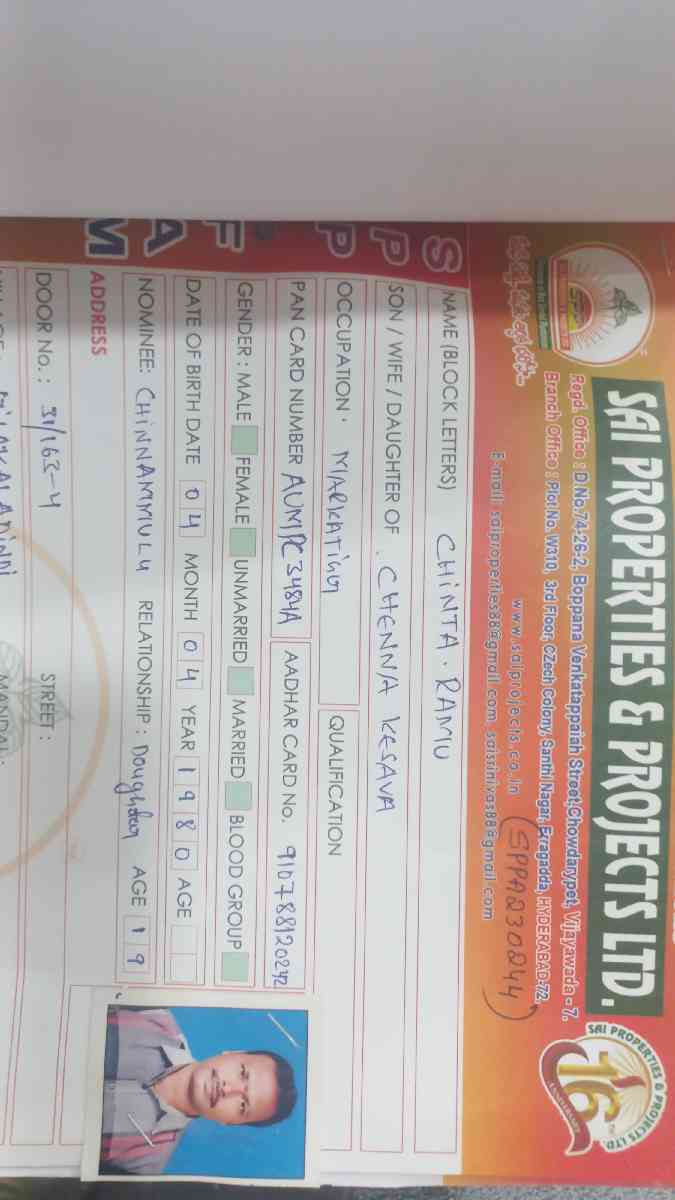 SAI PROPERTIES & PROJECTS LTD.
Regd. Office : D.No.74-26-2, Boppana Venkatappaiah Street, Chowdarypet, Vijayawada - 7.
Branch Office : Plot.No. W310, 3rd Floor, CZech Colony, Santhi Nagar, Erragadda, HYDERABAD-72.
www.saiprojects.co.in (SPPAQ30244)
E-mail: saiproperties88@gmail.com, saisrinivas88@gmail.com
SAI PROPERTIES & PROJECTS LTD.
16
ANNIVERSARY
S P P F A M
NAME (BLOCK LETTERS) CHINTA. RAMU
SON / WIFE / DAUGHTER OF CHENNA KESAVA
OCCUPATION. MARKATING QUALIFICATION
PAN CARD NUMBER AUMPC3484A AADHAR CARD No. 910788120242
GENDER : MALE FEMALE UNMARRIED MARRIED BLOOD GROUP
DATE OF BIRTH DATE 04 MONTH 04 YEAR 1980 AGE
NOMINEE: CHINNAMMULU RELATIONSHIP : Doughter AGE 19
ADDRESS
DOOR No. : 31/163-4 STREET :
MANDAL: